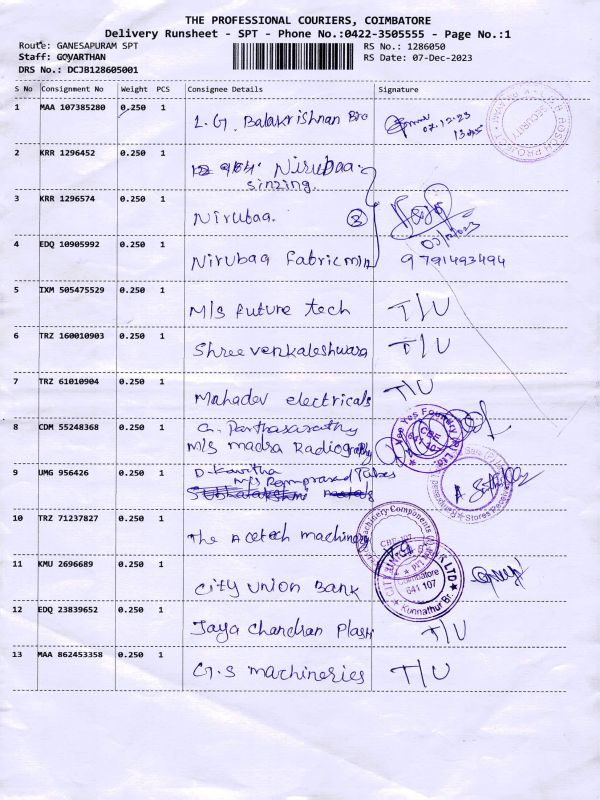 THE PROFESSIONAL COURIERS, COIMBATORE
Delivery Runsheet - SPT - Phone No.:0422-3505555 - Page No.:1
Route: GANESAPURAM SPT RS No.: 1286050
Staff: GOVARTHAN RS Date: 07-Dec-2023
DRS No.: DCJB128605001
S No Consignment No Weight PCS Consignee Details Signature
1 MAA 107385280 0.250 1 L.G. Balakrishnan Bro
07.12.23
SECURITY
2 KRR 1296452 0.250 1 Nirubaa
sinzing.
3 KRR 1296574 0.250 1 Nirubaa. 3
4 EDQ 10905992 0.250 1 Nirubaa Fabricmin 9791493494
5 IXM 505475529 0.250 1 M/s future tech T/U
6 TRZ 160010903 0.250 1 Shree venkaleshwara T/U
7 TRZ 61010904 0.250 1 Mahadev electricals T/U
8 CDM 55248368 0.250 1 G. Parthasarathy
M/s madra Radiography
Vee Yes Foundry (P) Ltd.
CBE
641 107
9 UMG 956426 0.250 1 D. Kavitha
M/s Ramprasad Tubes
Stores
10 TRZ 71237827 0.250 1 The Acetech machinery
Machinery Components
11 KMU 2696689 0.250 1 City Union Bank
Coimbatore
641 107
Kunnathur Br.
12 EDQ 23839652 0.250 1 Jaya Chandran Plasti T/U
13 MAA 862453358 0.250 1 G.S machineries T/U